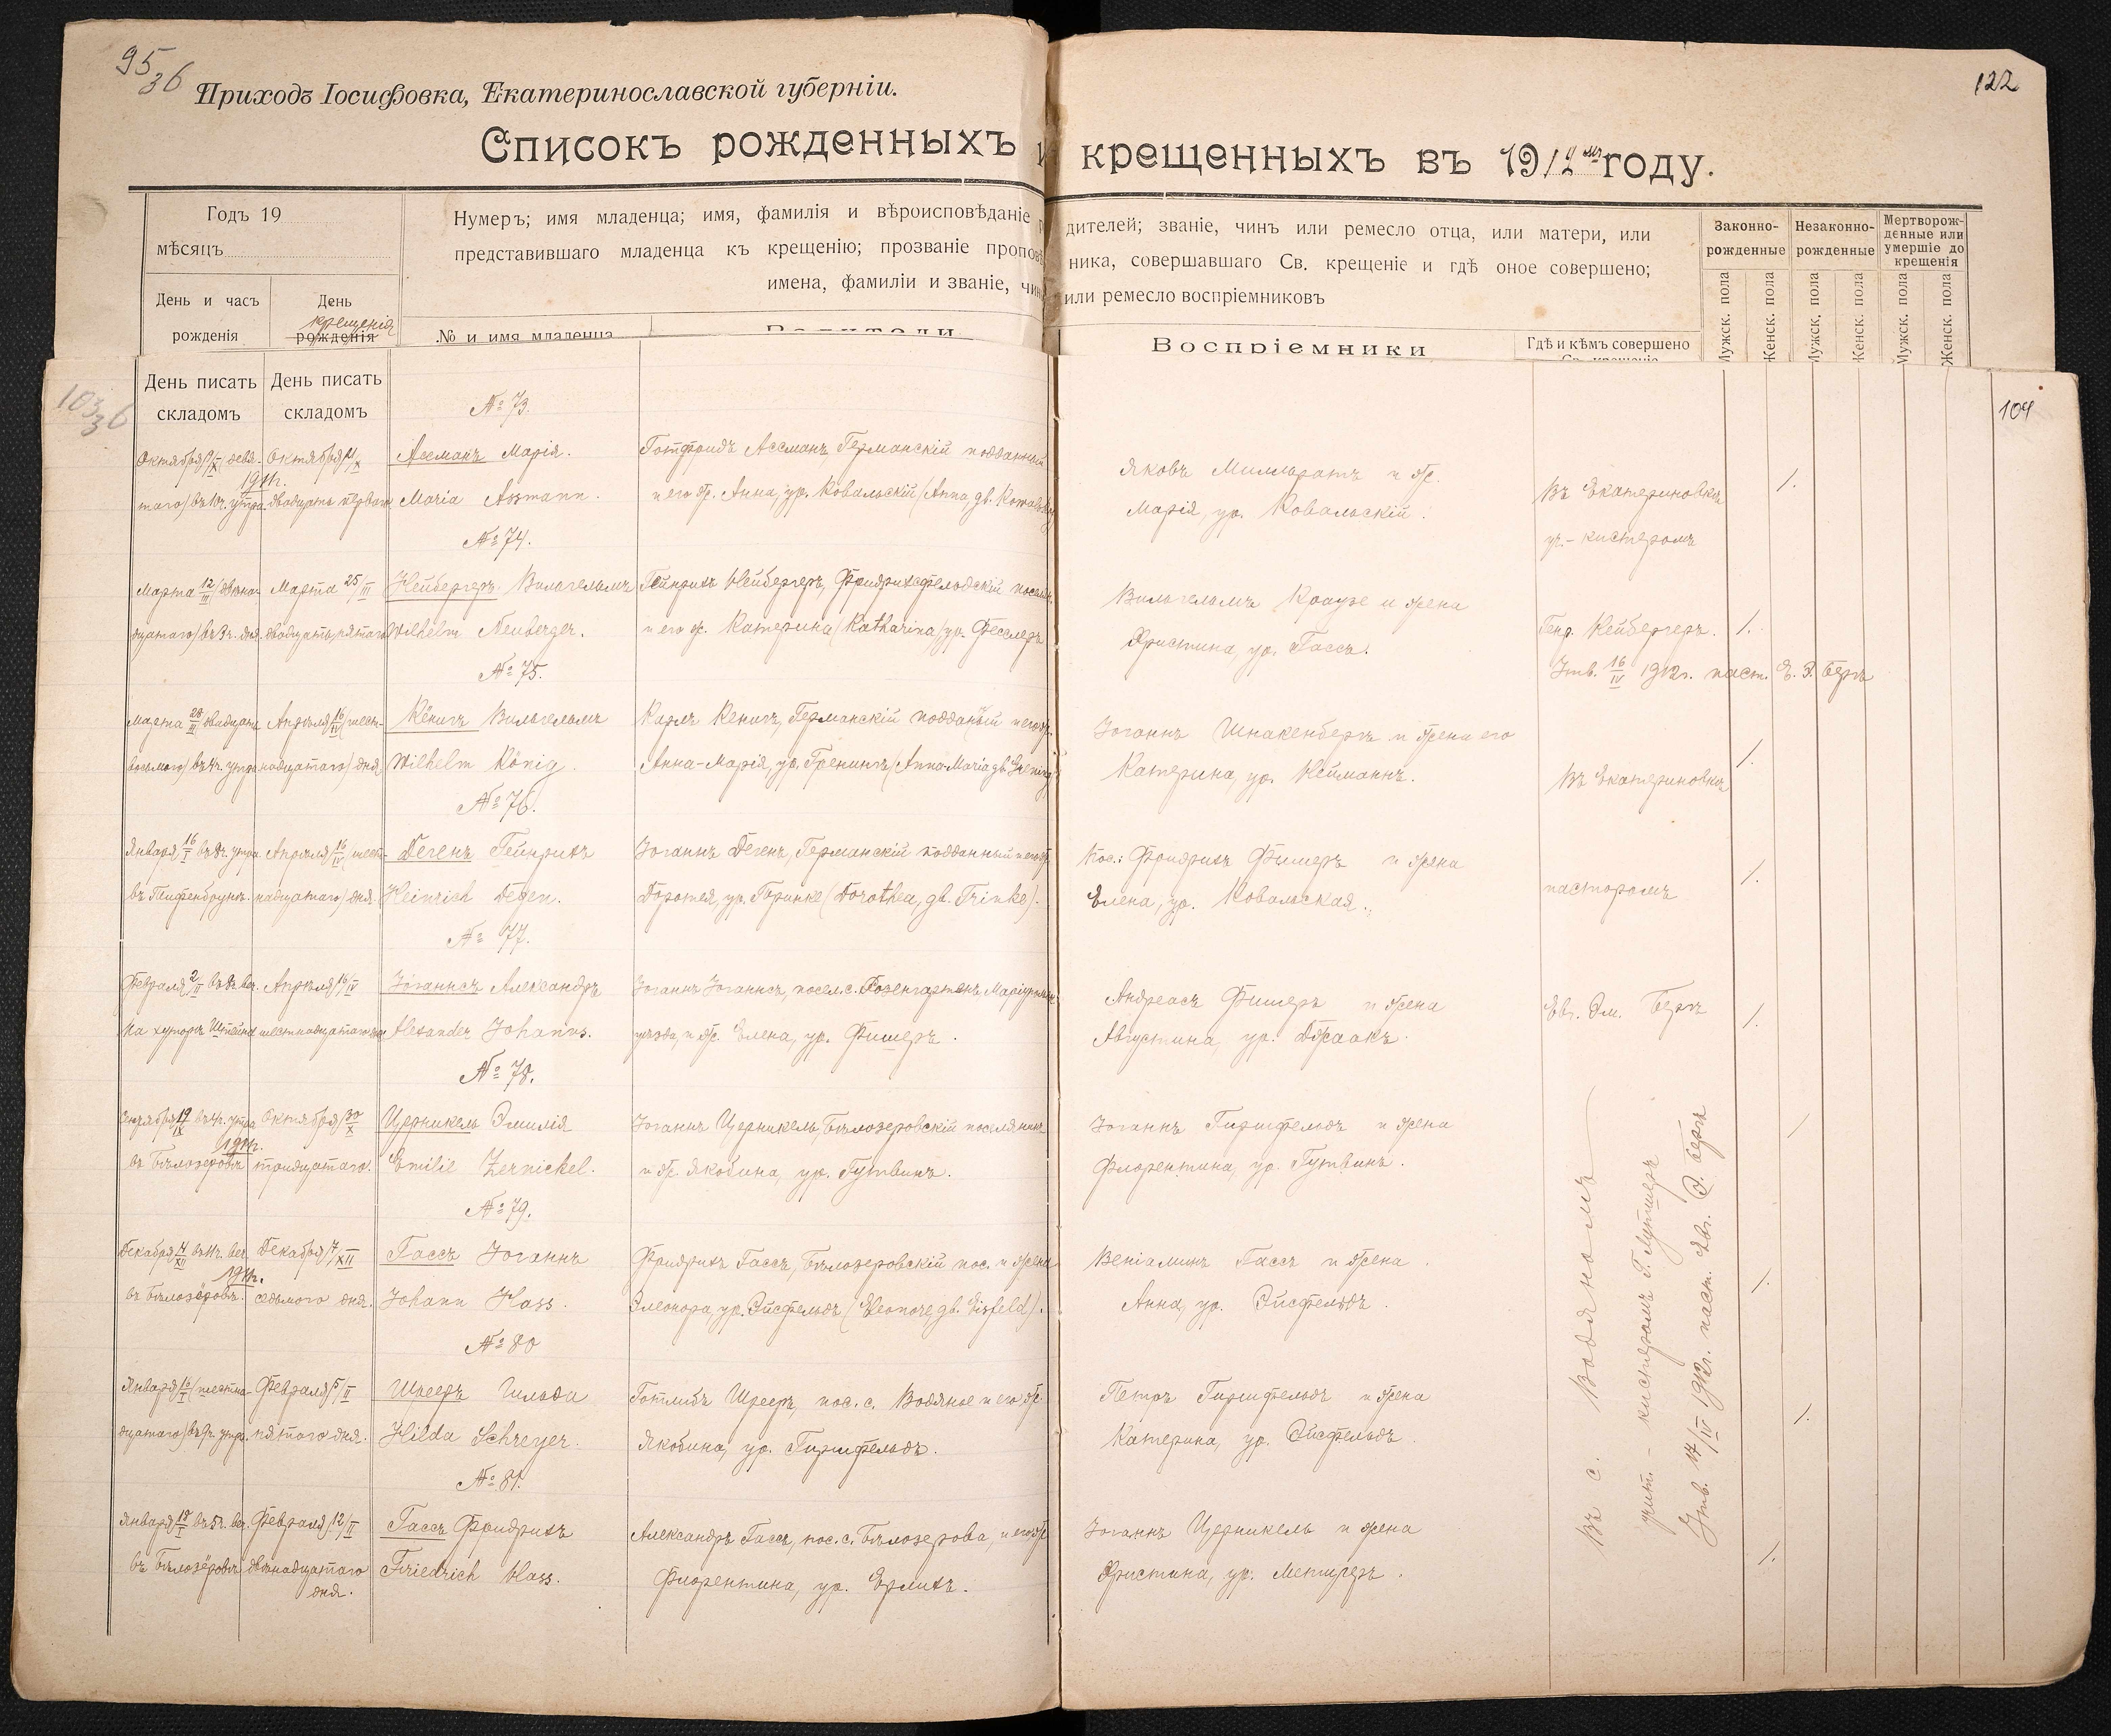 95
36
122
Приходъ Іосифовка, Екатеринославской губерніи.
Списокъ рожденныхъ и крещенныхъ въ 1912 году.
Годъ 19
мѣсяцъ
День и часъ
рожденія
День
крещенія
рожденія
Нумеръ; имя младенца; имя, фамилія и вѣроисповѣданіе
дителей; званіе, чинъ или ремесло отца, или матери, или
представившаго младенца къ крещенію; прозваніе пропов
ника, совершавшаго Св. крещеніе и гдѣ оное совершено;
имена, фамиліи и званіе, чинъ
или ремесло воспріемниковъ
№ и имя младенца
Родители
Воспріемники
Гдѣ и кѣмъ совершено
Св. крещеніе
Законно-
рожденные
Незаконно-
рожденные
Мертворож-
денные или
умершіе до
крещенія
Мужск. пола
Женск. пола
Мужск. пола
Женск. пола
Мужск. пола
Женск. пола
103
36
104
День писать
складомъ
День писать
складомъ
№ 73.
Октября 9/X (девя-
таго) въ 10ч. утра.
1911г.
Октября 21/X
двадцать перваго
Ассманъ Марія.
Maria Assmann.
Готфридъ Ассманъ, Германскій подданный
и его ж. Анна, ур. Ковальскій (Anna, gb.
Яковъ Милльратъ и ж.
Марія, ур. Ковальскій.
Въ Екатериновкѣ
уч.-кистеромъ
1.
№ 74.
Марта 12/III (двѣнад-
цатаго) въ 3ч. дня.
Марта 25/III
двадцать пятаго
Нейбергеръ Вильгельмъ
Wilhelm Neuberger.
Гейнрихъ Нейбергеръ, Фридрихсфельдскій посел.
и его ж. Катерина (Katharina) ур. Фесслеръ
Вильгельмъ Краузе и жена
Христина, ур. Гассъ.
Генр. Нейбергеръ.
1.
Утв. 16/IV 1912г. паст. Е. Э. Бергъ
№ 75.
Марта 28/III двадцать
восьмого) въ 4ч. утра
Апрѣля 16/IV (шест-
надцатаго) дня
Кёнигъ Вильгельмъ
Wilhelm König.
Карлъ Кенигъ, Германскій подданый и его ж.
Анна-Марія, ур. Гренингъ (Anna-Maria gb. Grening)
Іоганнъ Шнакенбергъ и жена его
Катерина, ур. Нейманнъ.
Въ Екатериновкѣ
1.
№ 76.
Января 16/I въ 8ч. утра
въ Тифенбрунъ.
Апрѣля 16/IV (шест-
надцатаго) дня.
Дегенъ Гейнрихъ
Heinrich Degen.
Іоганнъ Дегенъ, Германскій подданный и его ж.
Доротея, ур. Тринке (Dorothea, gb. Trinke).
Пос.: Фридрихъ Фишеръ и жена
Елена, ур. Ковальская.
пасторомъ
1.
№ 77.
Февраля 2/II въ 8ч. веч.
На хуторѣ Штейна
Апрѣля 16/IV
шестнадцатаго дня
Іоганнсъ Александръ
Alexander Johanns.
Іоганнъ Іоганнсъ, посел. с. Розенгартенъ, Маріупольск.
уѣзда, и ж. Елена, ур. Фишеръ.
Андреасъ Фишеръ и жена
Августина, ур. Джаакъ.
Евг. Эм. Бергъ
1.
№ 78.
Сентября 19/IX въ 4ч. утра
1911г.
въ Бѣлозеровкѣ
Октября 30/X
тридцатаго.
Церникель Эмилія
Emilie Zernickel.
Іоганнъ Церникель, Бѣлозеровскій поселянинъ
и ж. Якобина, ур. Гутвинъ.
Іоганнъ Гиршфельдъ и жена
Флорентина, ур. Гутвинъ.
1
№ 79.
Декабря 4/XII въ 11ч. веч.
1911г.
въ Бѣлозёровк.
Декабря 7/XII
седьмого дня.
Гассъ Іоганнъ
Johann Hass.
Фридрихъ Гассъ, Бѣлозеровскій пос. и жена
Элеонора, ур. Эйсфельдъ (Eleonore, gb. Eisfeld).
Веніаминъ Гассъ и жена
Анна, ур. Эйсфельдъ.
1.
№ 80
Января 16/I (шестна-
дцатаго) въ 9ч. утра.
Февраля 5/II
пятаго дня.
Шрееръ Гильда
Hilda Schreyer.
Готлибъ Шрееръ, пос. с. Водяное и его ж.
Якобина, ур. Гиршфельдъ.
Петръ Гиршфельдъ и жена
Катерина, ур. Эйсфельдъ.
1.
№ 81.
Января 18/I въ 5ч. веч.
въ Бѣлозёровкѣ
Февраля 12/II
двѣнадцатаго
дня.
Гассъ Фридрихъ
Friedrich Hass.
Александръ Гассъ, пос. с. Бѣлозерова, и его ж.
Флорентина, ур. Ерлихъ.
Іоганнъ Церникель и жена
Христина, ур. Метцгеръ.
1.
Въ с. Водяномъ
учит.-кистеромъ Г. Лутшеръ
Утв. 17/IV 1912г. паст. Евг. Э. Бергъ